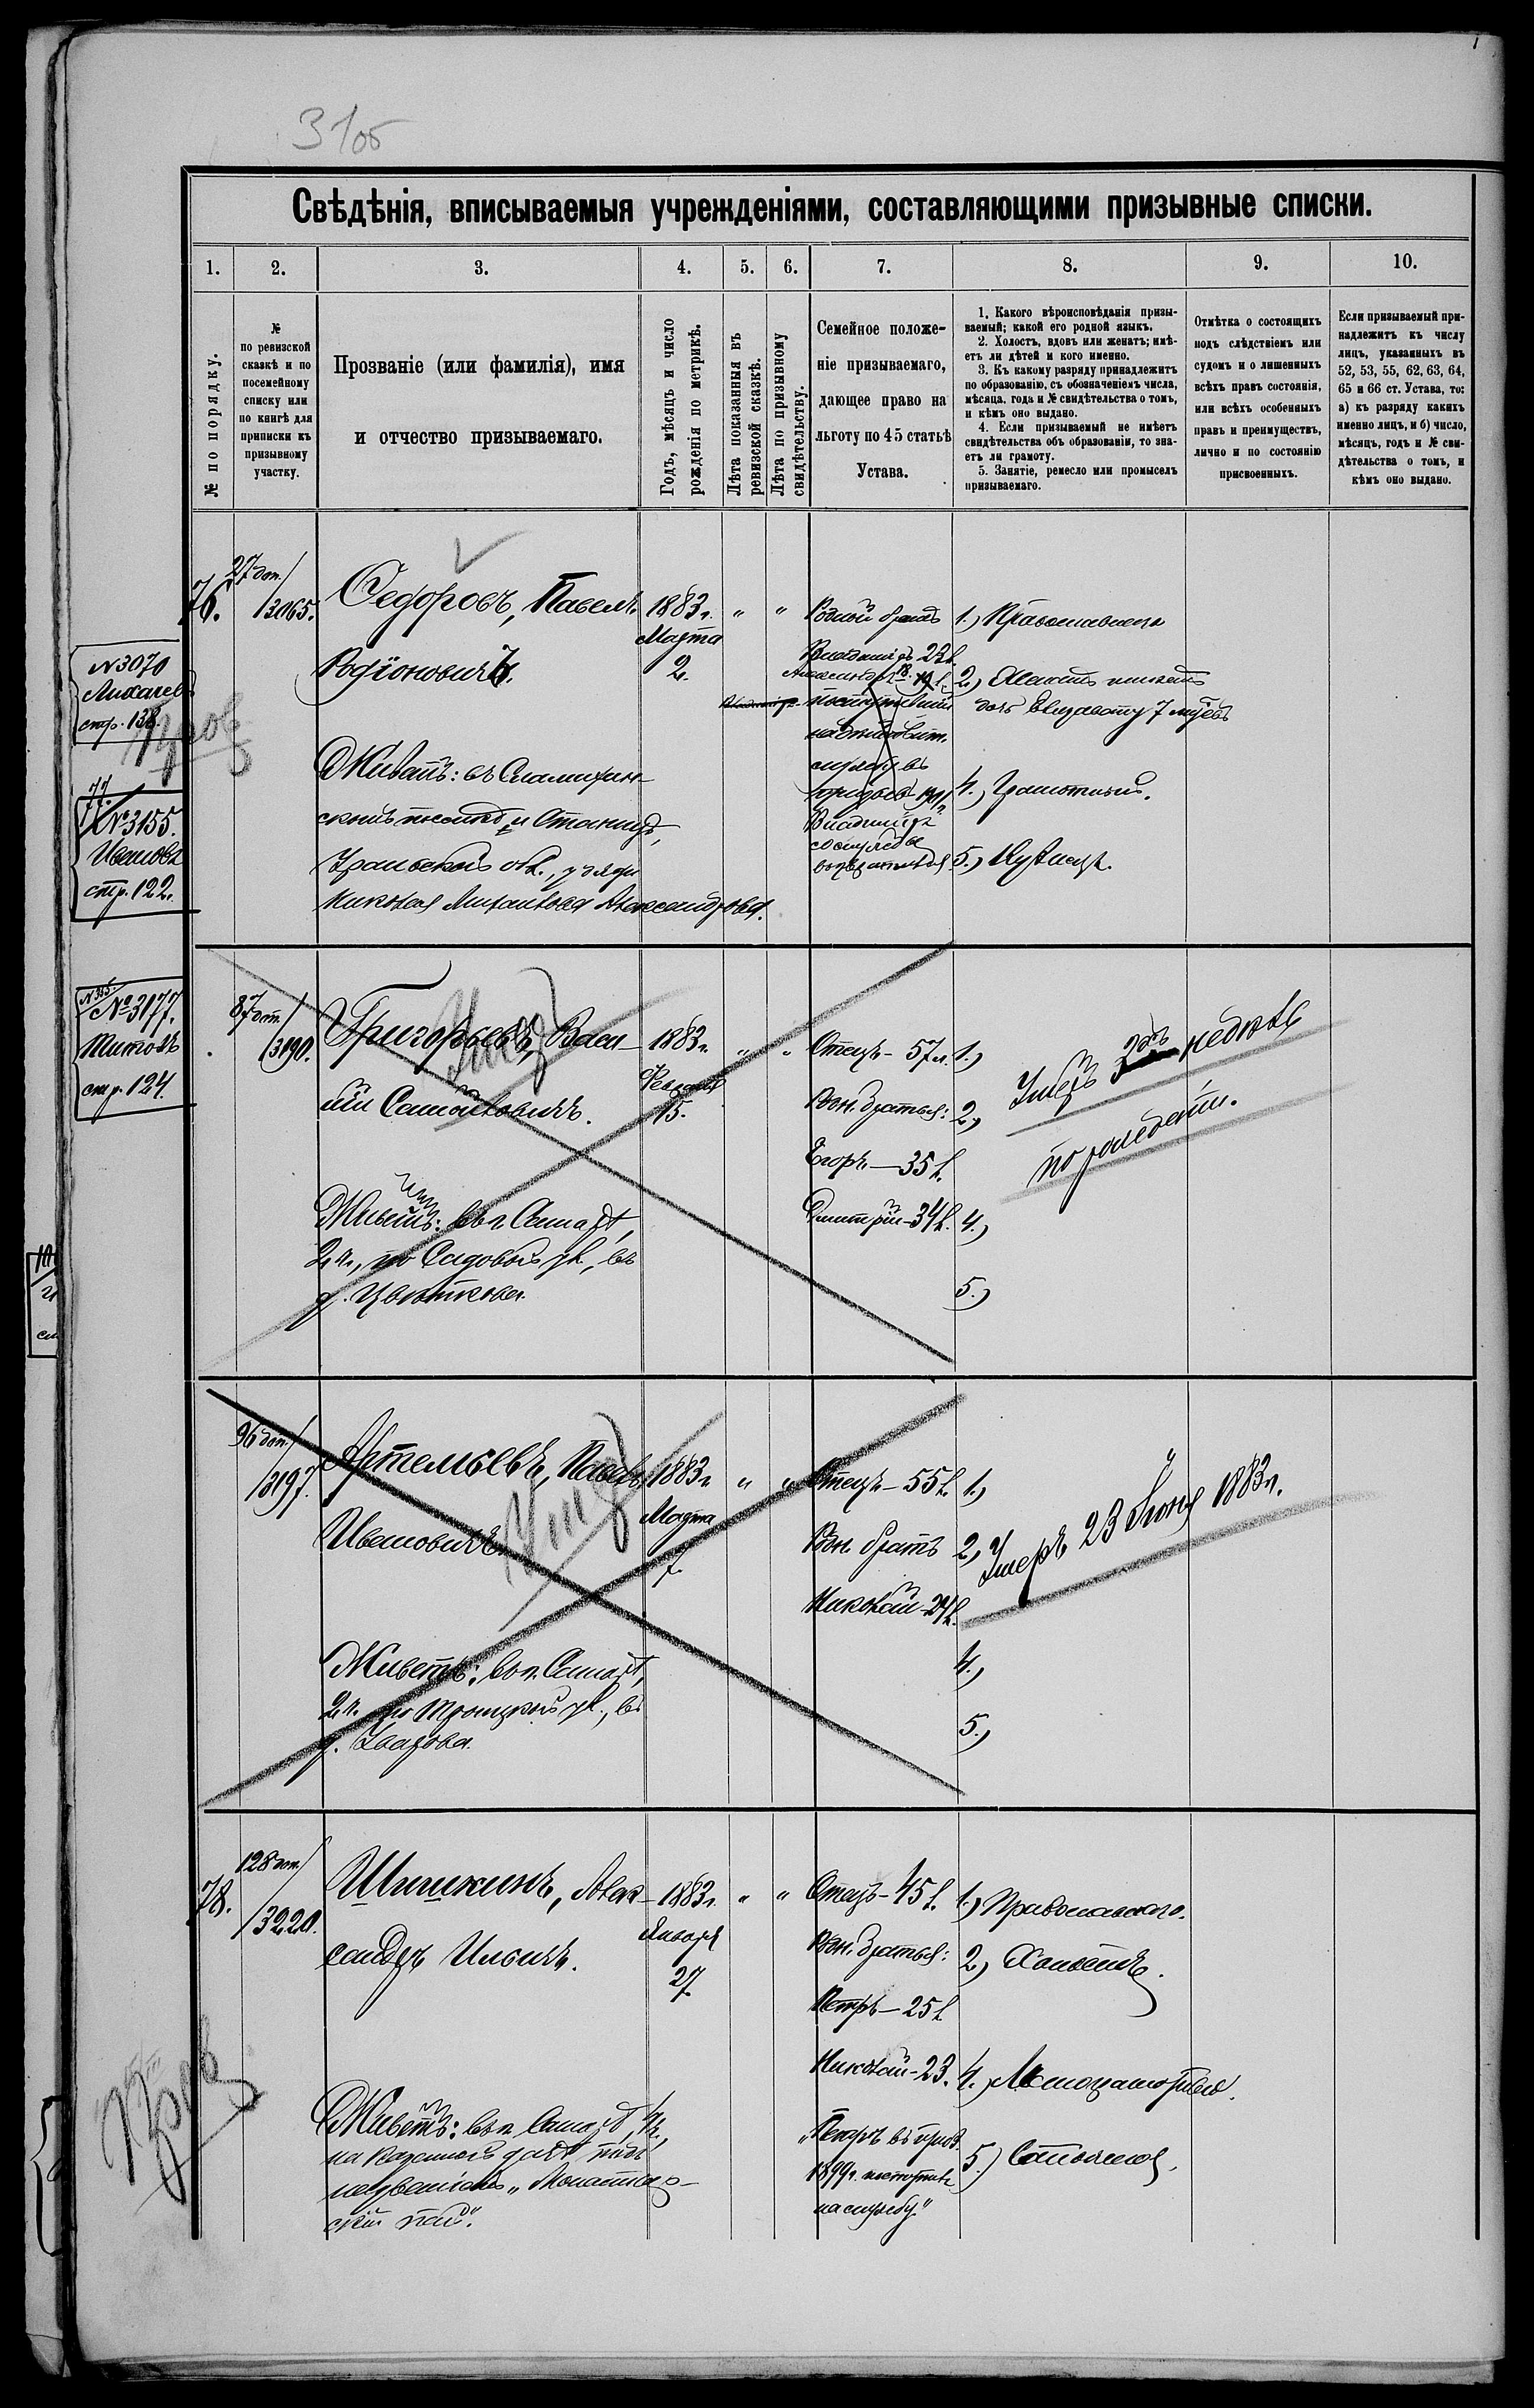 31об
Свѣдѣнія, вписываемыя учрежденіями, составляющими призывные списки.
1. 2. 3. 4. 5. 6. 7. 8. 9. 10.
№ по порядку.
№
по ревизской
сказкѣ и по
посемейному
списку или
по книгѣ для
приписки къ
призывному
участку.
Прозваніе (или фамилія), имя
и отчество призываемаго.
Годъ, мѣсяцъ и число
рожденія по метрикѣ.
Лѣта показанныя въ
ревизской сказкѣ.
Лѣта по призывному
свидѣтельству.
Семейное положе-
ніе призываемаго,
дающее право на
льготу по 45 статьѣ
Устава.
1. Какого вѣроисповѣданія призы-
ваемый; какой его родной языкъ.
2. Холостъ, вдовъ или женатъ; имѣ-
етъ ли дѣтей и кого именно.
3. Къ какому разряду принадлежитъ
по образованію, съ обозначеніемъ числа,
мѣсяца, года и № свидѣтельства о томъ,
и кѣмъ оно выдано.
4. Если призываемый не имѣетъ
свидѣтельства объ образованіи, то зна-
етъ ли грамоту.
5. Занятіе, ремесло или промыселъ
призываемаго.
Отмѣтка о состоящихъ
подъ слѣдствіемъ или
судомъ и о лишенныхъ
всѣхъ правъ состоянія,
или всѣхъ особенныхъ
правъ и преимуществъ,
лично и по состоянію
присвоенныхъ.
Если призываемый при-
надлежитъ къ числу
лицъ, указанныхъ въ
52, 53, 55, 62, 63, 64,
65 и 66 ст. Устава, то:
а) къ разряду какихъ
именно лицъ, и б) число,
мѣсяцъ, годъ и № сви-
дѣтельства о томъ, и
кѣмъ оно выдано.
N 3070
Лихачевъ
стр. 138.
77.
№ 3155.
Ивановъ
стр. 122.
№ 3177.
Титовъ
стр. 124.
76.
27 доп./
/3065.
Федоровъ, Павелъ
Родіоновичъ.
Живетъ: въ Сламихин-
Уральской обл., у зятя
Николая Михайлова Александрова.
1883 г.
Марта
2.
" "
Родной братъ
Владиміръ 22 л.
Александръ
поступившій
1.) Православнаго
2.) Женатъ имѣетъ
дочь Елизавету 7 мѣсяц.
4.) Грамотный.
5.) Кузнецъ.
87 доп./
/3190.
Григорьевъ, Васи-
лій Самойловичъ.
Умеръ
Живетъ: въ г. Самарѣ,
2 ч., по Садовой ул., въ
д. Цвѣткова.
1883 г.
Февраля
15.
" "
Отецъ - 57 л.
Родн. братья:
Егоръ - 35 л.
Дмитрій - 34 л.
1.)
2.)
4.)
5.)
Умеръ 2хъ недѣль
по рожденіи.
96 доп./
/3197.
Артемьевъ, Павелъ
Ивановичъ.
Умеръ
Живетъ: въ г. Самарѣ,
2 ч. по Троицкой ул., въ
д. Уварова.
1883 г.
Марта
7.
" "
Отецъ - 55 л.
Родн. братъ
Николай - 24 л.
1.)
2.)
4.)
5.)
Умеръ 23 Іюня 1883 г.
78.
128 доп./
/3220.
Шишкинъ, Алек-
сандръ Ильичъ.
Живетъ: въ г. Самарѣ, 4 ч.,
на казенной дачѣ подъ
названіемъ „Монастыр-
скій пай“.
1883 г.
Января
27.
" "
Отецъ - 45 л.
Родн. братья:
Петръ - 25 л.
Николай - 23.
„Петръ въ приз.
1899 г. поступилъ
на службу.“
1.) Православнаго.
2.) Холостъ.
4.) Малограмотный.
5.) Столяръ